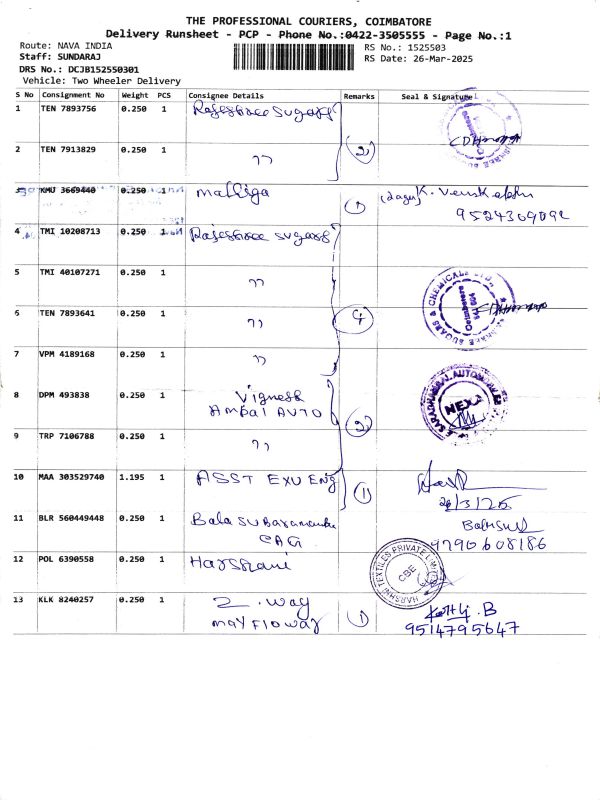 THE PROFESSIONAL COURIERS, COIMBATORE
Delivery Runsheet - PCP - Phone No.:0422-3505555 - Page No.:1
Route: NAVA INDIA
RS No.: 1525503
Staff: SUNDARAJ
RS Date: 26-Mar-2025
DRS No.: DCJB152550301
Vehicle: Two Wheeler Delivery
S No Consignment No Weight PCS Consignee Details Remarks Seal & Signature
1 TEN 7893756 0.250 1 Rajeshree sugars
2 TEN 7913829 0.250 1 ,, 2
3 KMU 3669440 0.250 1 Malliga 1 K. Venkatesh
9524309092
4 TMI 10208713 0.250 1 Rajeshree sugars
5 TMI 40107271 0.250 1 ,,
6 TEN 7893641 0.250 1 ,, 4
7 VPM 4189168 0.250 1 ,,
8 DPM 493838 0.250 1 Vignesh
Ambal AUTO 2 NEXA
9 TRP 7106788 0.250 1 ,,
10 MAA 303529740 1.195 1 ASST EXU ENG 1
26/3/25
11 BLR 560449448 0.250 1 Bala
CAG 9790608186
12 POL 6390558 0.250 1 Harshani HARSHNI TEXTILES PRIVATE LIMITED CBE
13 KLK 8240257 0.250 1 2. way
may flower 1
9514795647